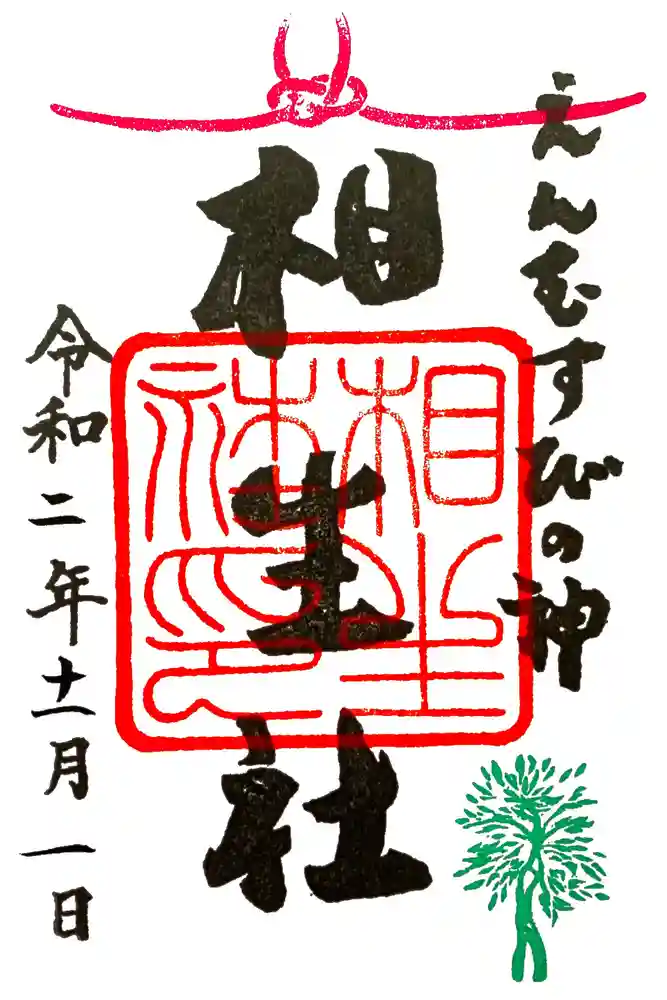 えんむすびの神
相生社
相生社印
令和二年十一月一日